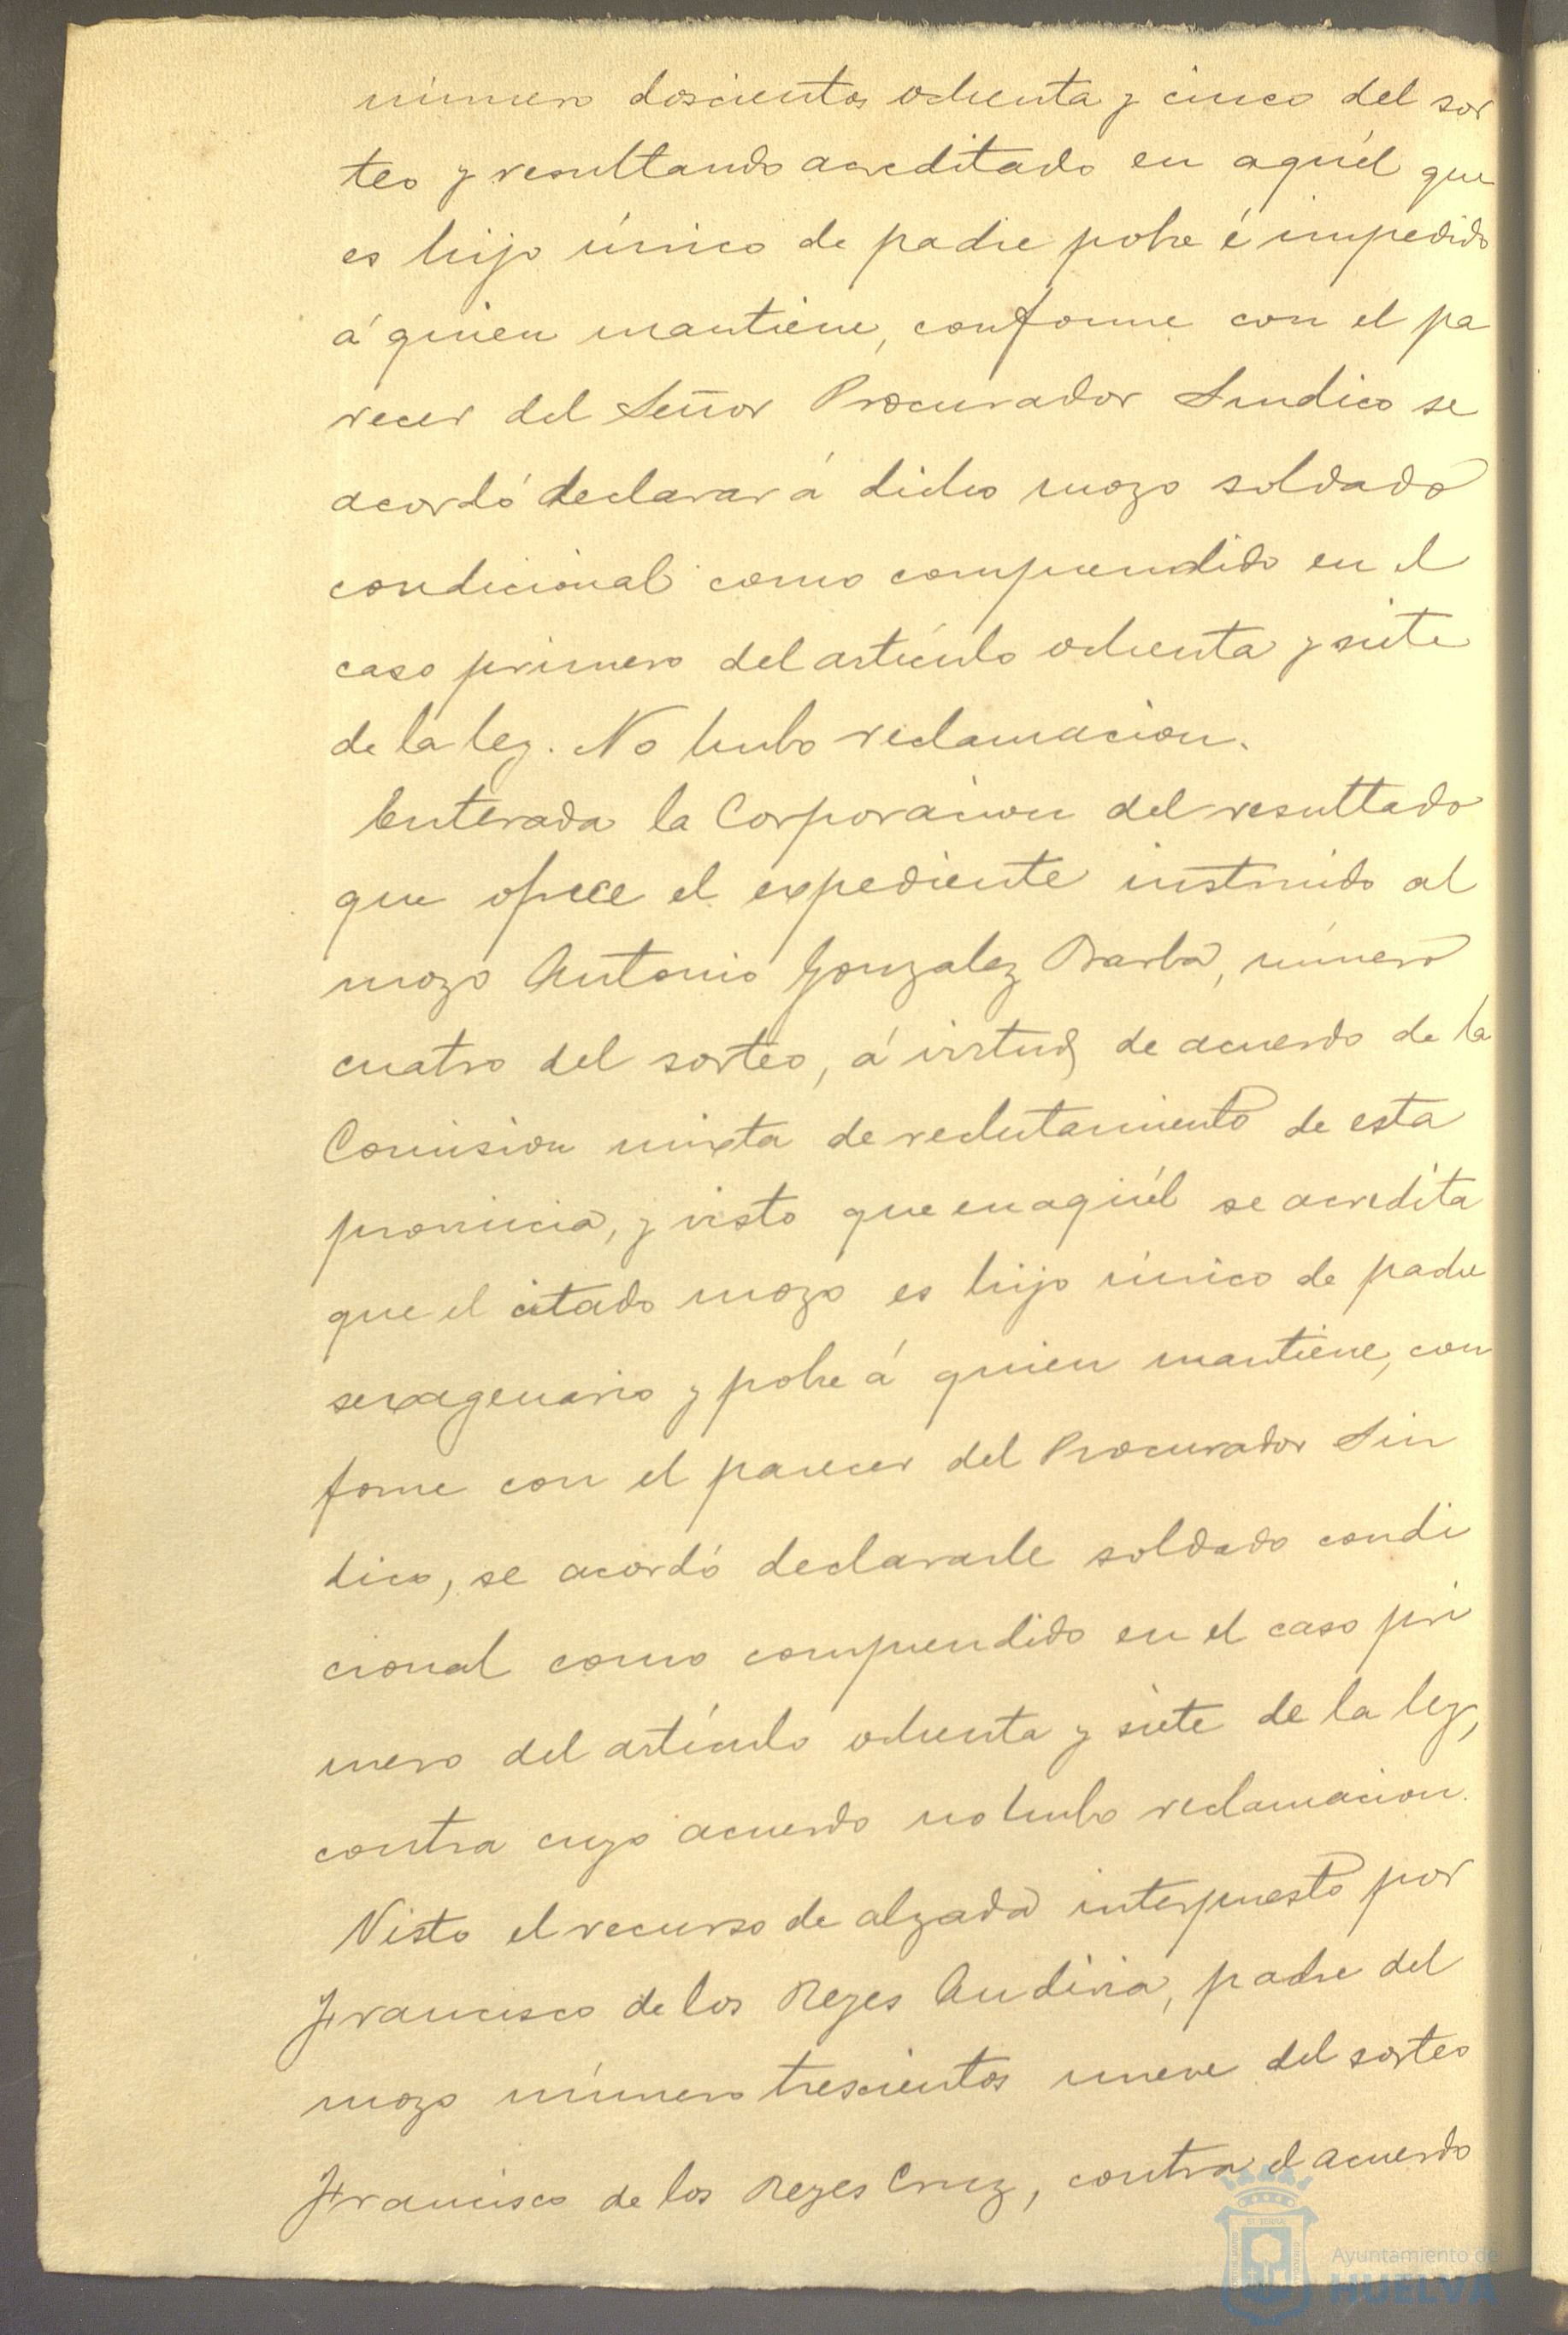 número doscientos ochenta y cinco del sor
teo y resultando acreditado en aquél que
es hijo único de padre pobre é impedido
á quien mantiene, conforme con el pa
recer del Señor Procurador Sindico se
acordó declarar á dicho mozo soldado
condicional como comprendido en el
caso primero del artículo ochenta y siete
de la ley. No hubo reclamacion.
Enterada la Corporacion del resultado
que ofrece el expediente instruido al
mozo Antonio Gonzalez Barba, número
cuatro del sorteo, á virtud de acuerdo de la
Comision mixta de reclutamiento de esta
provincia, y visto que en aquél se acredita
que el citado mozo es hijo único de padre
sexagenario y pobre á quien mantiene, con
forme con el parecer del Procurador Sin
dico, se acordó declararle soldado condi
cional como comprendido en el caso pri
mero del artículo ochenta y siete de la ley,
contra cuyo acuerdo no hubo reclamacion.
Visto el recurso de alzada interpuesto por
Francisco de los Reyes padre del
mozo número trescientos nueve del sorteo
Francisco de los Reyes Cruz, contra el acuerdo
Ayuntamiento de
HUELVA